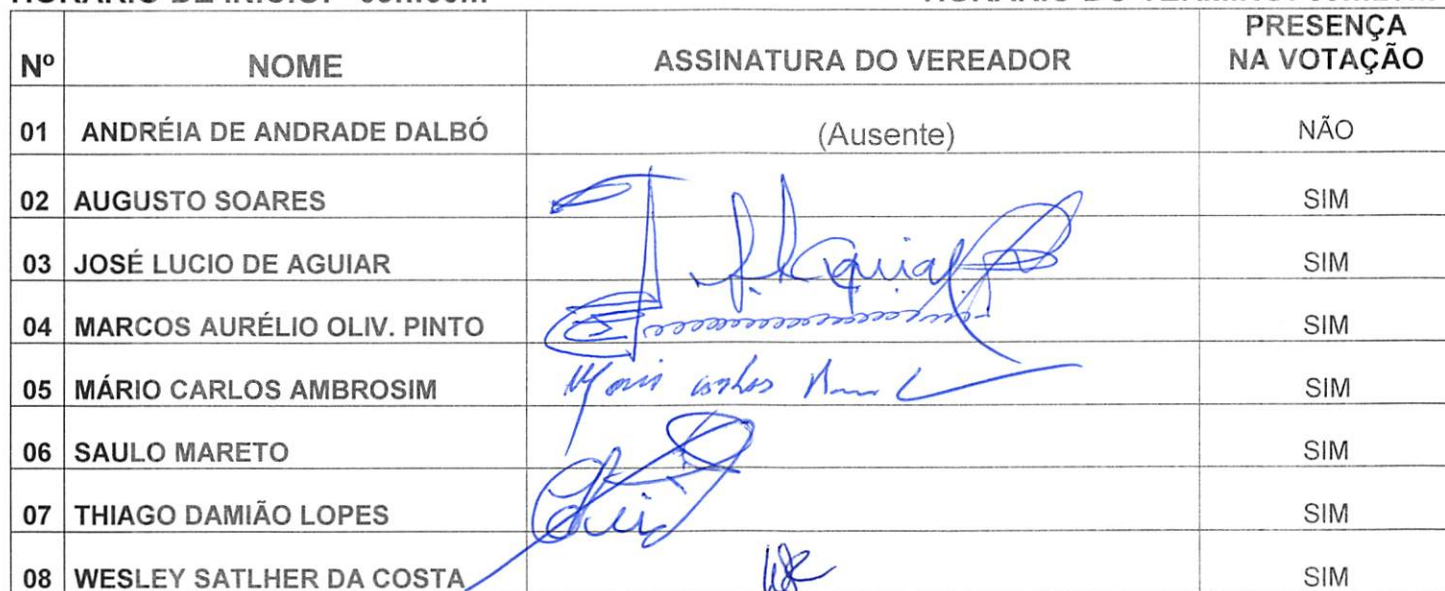 Nº NOME ASSINATURA DO VEREADOR PRESENÇA NA VOTAÇÃO
01 ANDRÉIA DE ANDRADE DALBÓ (Ausente) NÃO
02 AUGUSTO SOARES SIM
03 JOSÉ LUCIO DE AGUIAR SIM
04 MARCOS AURÉLIO OLIV. PINTO SIM
05 MÁRIO CARLOS AMBROSIM SIM
06 SAULO MARETO SIM
07 THIAGO DAMIÃO LOPES SIM
08 WESLEY SATLHER DA COSTA SIM